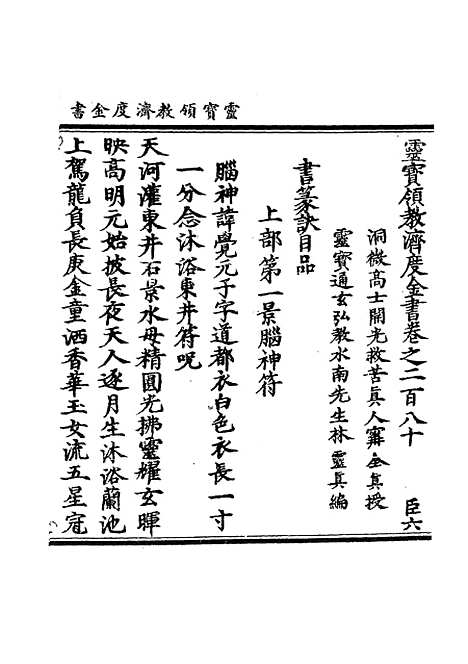 靈寶領教濟度金書
靈寶領教濟度金書卷之二百八十
臣六
洞微高士開光救苦真人甯全真授
靈寶通玄弘教水南先生林靈真編
書篆訣目品
上部第一景腦神符
腦神諱覺元子字道都衣白色衣長一寸
一分念沐浴東井符呪
天河灌東井石景水母精圓光拂靈耀玄暉
映高明元始披長夜天人逐月生沐浴蘭池
上駕龍負長庚金童洒香華玉女流五星冠